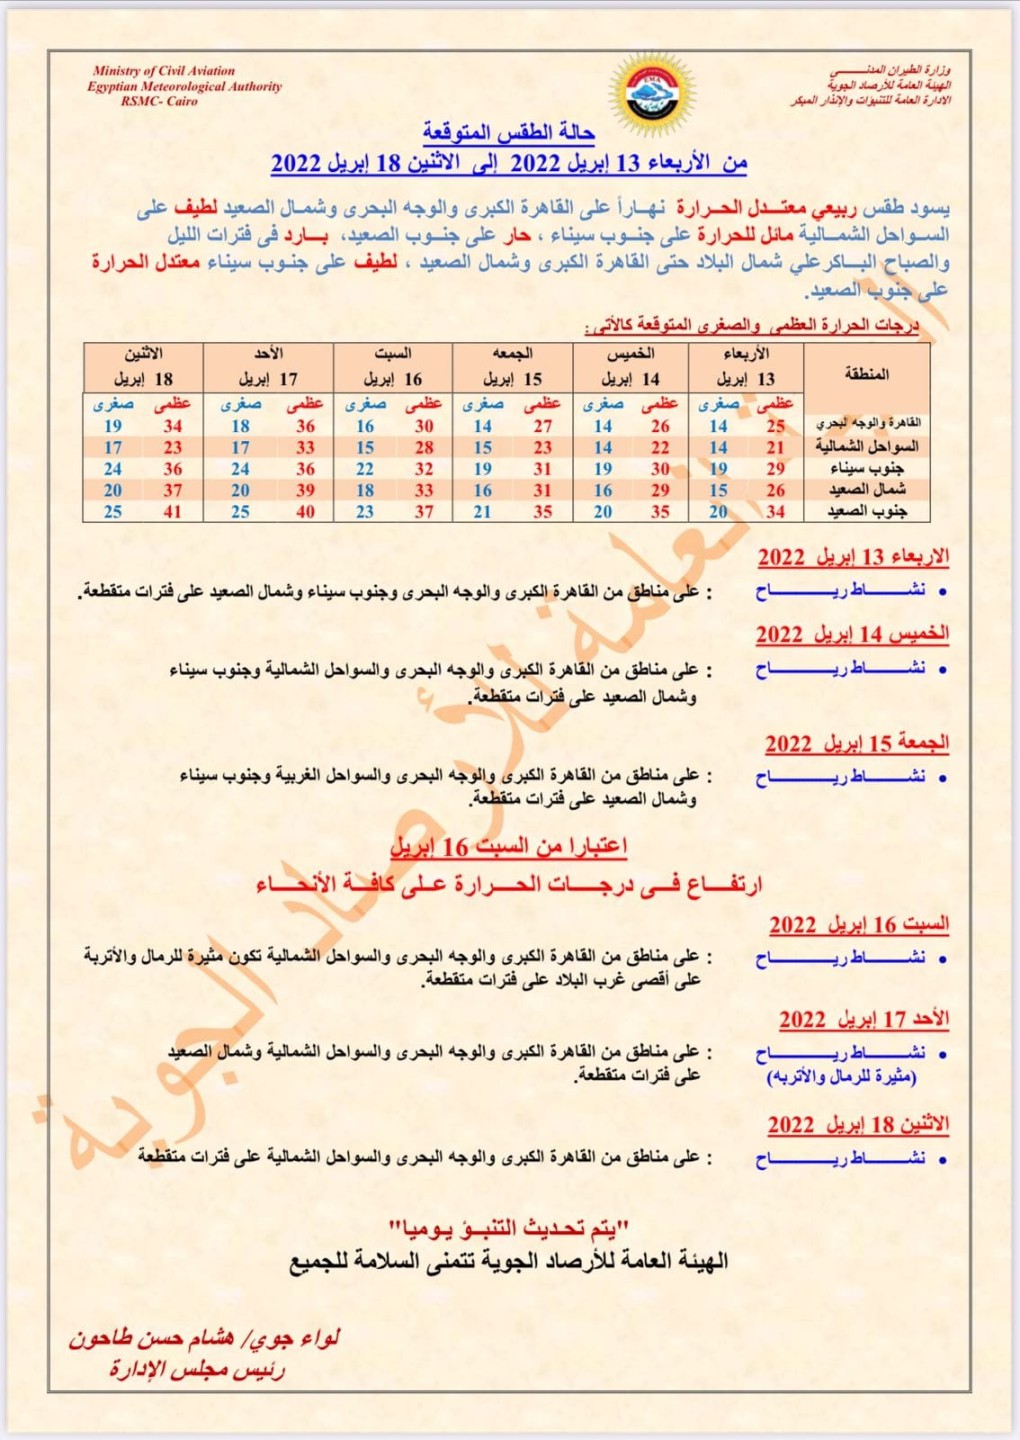 Ministry of Civil Aviation
Egyptian Meteorological Authority
RSMC- Cairo
وزارة الطيران المدنـــــي
الهيئة العامة للأرصاد الجوية
الادارة العامة للتنبؤات والإنذار المبكر
EMA
حالة الطقس المتوقعة
من الأربعاء 13 إبريل 2022 إلى الاثنين 18 إبريل 2022
يسود طقس ربيعي معتــدل الحــرارة نهـاراً على القاهرة الكبرى والوجه البحرى وشمـال الصعيد لطيف على
السـواحل الشمـالية مائل للحرارة على جنـوب سيناء ، حار على جنـوب الصعيد، بـــارد فى فترات الليل
والصباح البـــاكرعلي شمال البلاد حتى القاهرة الكبرى وشمال الصعيد ، لطيف على جنـوب سيناء معتدل الحرارة
على جنوب الصعيد.
درجات الحرارة العظمى والصغرى المتوقعة كالأتى :
المنطقة الأربعاء الخميس الجمعه السبت الأحد الاثنين
13 إبريل 14 إبريل 15 إبريل 16 إبريل 17 إبريل 18 إبريل
عظمى صغرى عظمى صغرى عظمى صغرى عظمى صغرى عظمى صغرى عظمى صغرى
القاهرة والوجه لبحري 25 14 26 14 27 14 30 16 36 18 34 19
السواحل الشمالية 21 14 22 14 23 15 28 15 33 17 23 17
جنوب سيناء 29 19 30 19 31 19 32 22 36 24 36 24
شمال الصعيد 26 15 29 16 31 16 33 18 39 20 37 20
جنوب الصعيد 34 20 35 20 35 21 37 23 40 25 41 25
الاربعاء 13 إبريل 2022
• نشــــــاط ريـــــــــاح : على مناطق من القاهرة الكبرى والوجه البحرى وجنوب سيناء وشمال الصعيد على فترات متقطعة.
الخميس 14 إبريل 2022
• نشــــــاط ريـــــــــاح : على مناطق من القاهرة الكبرى والوجه البحرى والسواحل الشمالية وجنوب سيناء
وشمال الصعيد على فترات متقطعة.
الجمعة 15 إبريل 2022
• نشــــــاط ريـــــــــاح : على مناطق من القاهرة الكبرى والوجه البحرى والسواحل الغربية وجنوب سيناء
وشمال الصعيد على فترات متقطعة.
اعتبارا من السبت 16 إبريل
ارتفـــاع فــى درجـــات الحـــرارة علـى كافـة الأنحـــاء
السبت 16 إبريل 2022
• نشــــــاط ريـــــــــاح : على مناطق من القاهرة الكبرى والوجه البحرى والسواحل الشمالية تكون مثيرة للرمال والأتربة
على أقصى غرب البلاد على فترات متقطعة.
الأحد 17 إبريل 2022
• نشــــــاط ريـــــــــاح : على مناطق من القاهرة الكبرى والوجه البحرى والسواحل الشمالية وشمال الصعيد
(مثيرة للرمال والأتربه) على فترات متقطعة.
الاثنين 18 إبريل 2022
• نشــــــاط ريـــــــــاح : على مناطق من القاهرة الكبرى والوجه البحرى والسواحل الشمالية على فترات متقطعة
"يتم تحديث التنبـؤ يـوميا"
الهيئة العامة للأرصاد الجوية تتمنى السلامة للجميع
لواء جوي/ هشام حسن طاحون
رئيس مجلس الإدارة
العامة للأرصاد الجوية